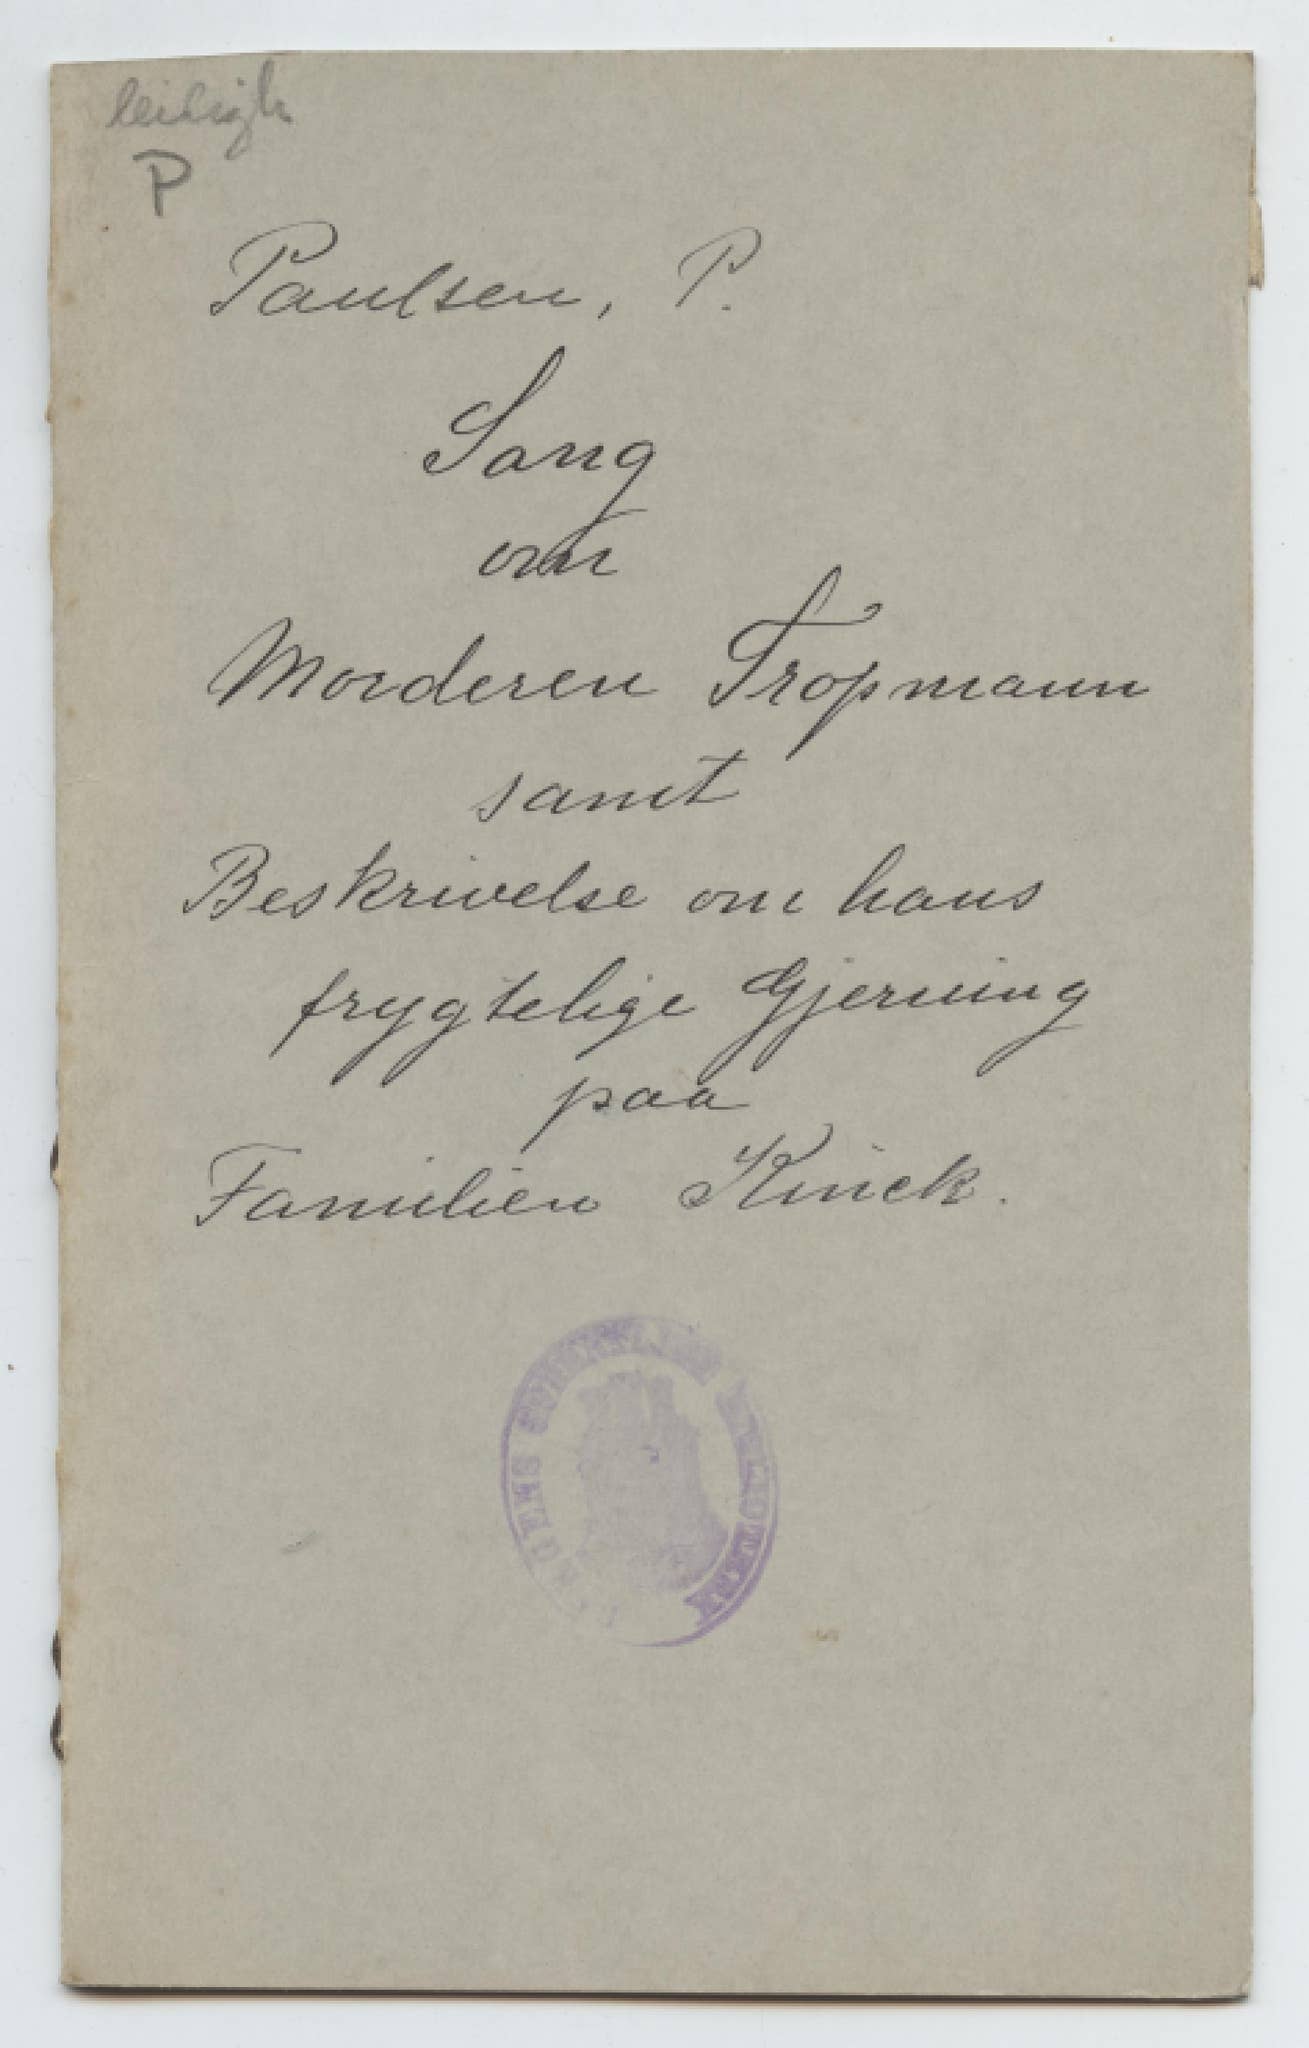 P
Paulsen, P.
Sang
om
Morderen Tropmann
samt
Beskrivelse om hans
frygtelige Gjerning
paa
Familien Kinck.